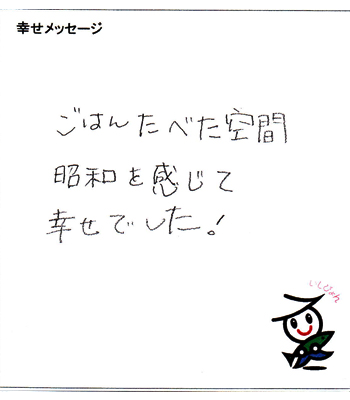 幸せメッセージ
ごはんたべた空間
昭和を感じて
幸せでした!